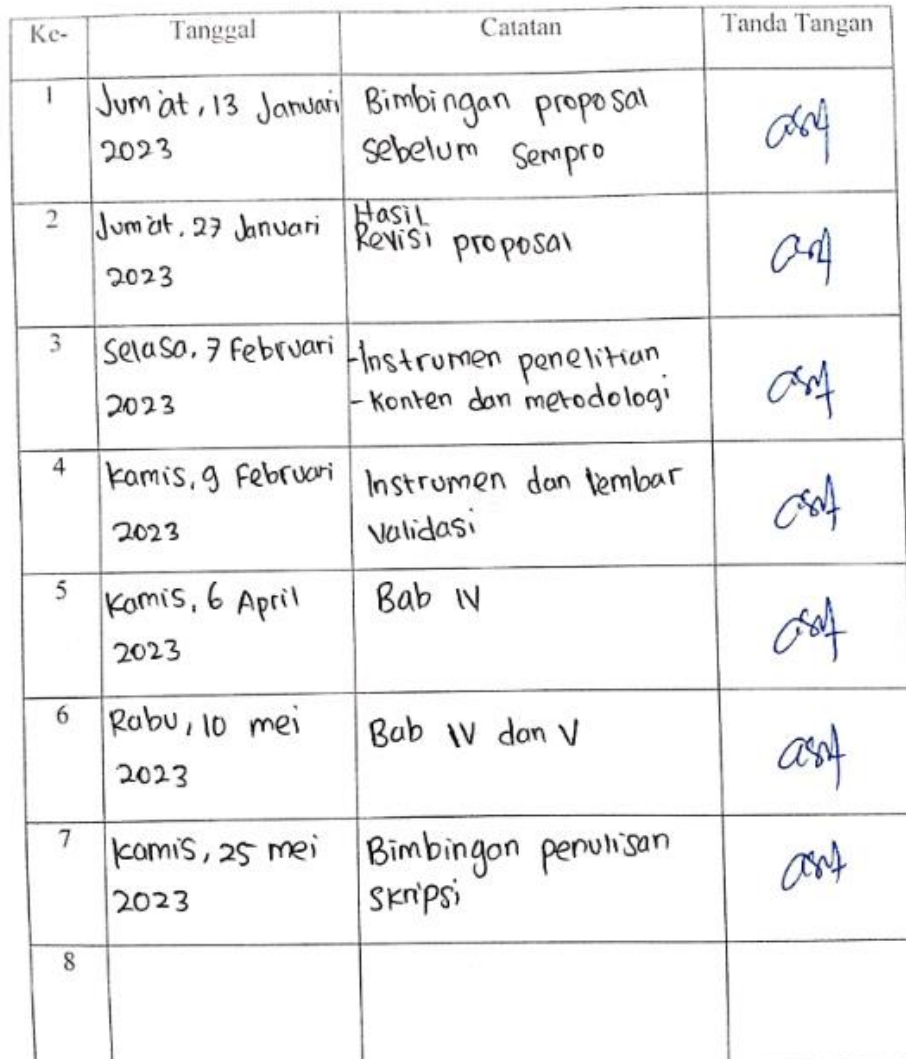 Ke- Tanggal Catatan Tanda Tangan
1 Jum'at, 13 Januari Bimbingan proposal
2023 sebelum Sempro
2 Jum'at, 27 Januari Hasil
Revisi proposal
2023
3 Selasa, 7 Februari -Instrumen penelitian
2023 -Konten dan metodologi
4 Kamis, 9 Februari Instrumen dan lembar
2023 Validasi
5 Kamis, 6 April Bab IV
2023
6 Rabu, 10 mei Bab IV dan V
2023
7 Kamis, 25 mei Bimbingan penulisan
2023 skripsi
8